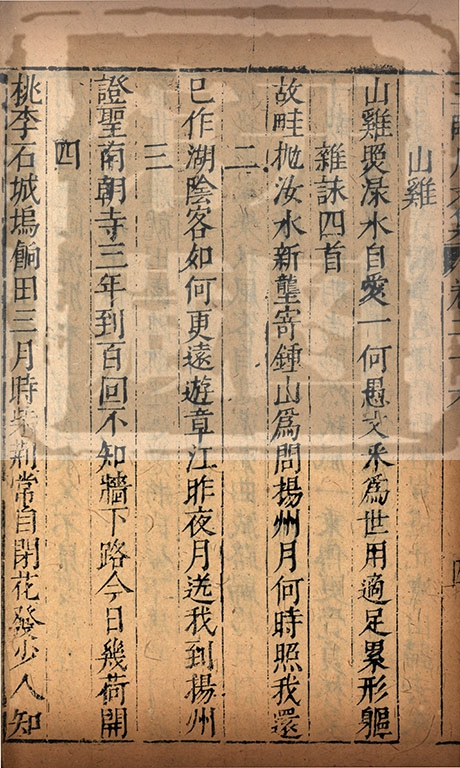 山雞
山雞照淥水自愛一何愚文采為世用適足累形軀
雜詠四首
故畦抛汝水新壟寄鍾山為問揚州月何時照我還
二
已作湖陰客如何更遠遊章江昨夜月送我到揚州
三
證聖南朝寺三年到百回不知牆下路今日幾荷開
四
桃李石城塢餉田三月時柴荊常自閉花發少人知